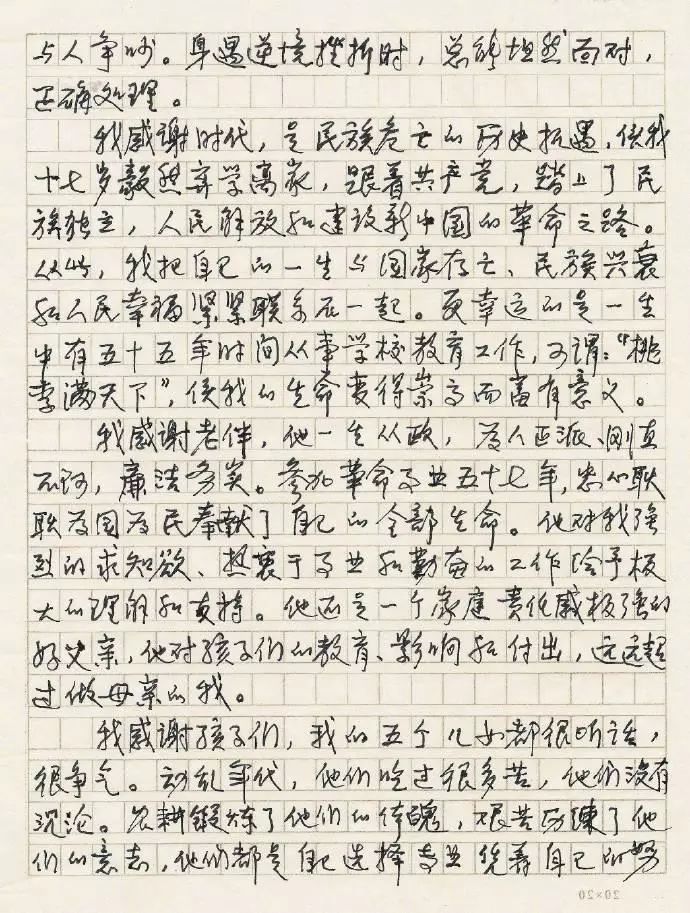 与人争吵。身遇逆境挫折时，总能坦然面对，
正确处理。
我感谢时代，是民族危亡的历史机遇，使我
十七岁毅然弃学离家，跟着共产党，踏上了民
族独立，人民解放和建设新中国的革命之路。
从此，我把自己的一生与国家存亡、民族兴衰
和人民幸福紧紧联系在一起。更幸运的是一生
中有五十五年时间从事学校教育工作，可谓："桃
李满天下"，使我的生命变得崇高而富有意义。
我感谢老伴，他一生从政，为人正派、刚直
不阿，廉洁务实。参加革命事业五十七年，忠心耿
耿为国为民奉献了自己的全部生命。他对我强
烈的求知欲、热衷于事业和勤奋的工作给予极
大的理解和支持。他还是一个家庭责任感极强的
好父亲，他对孩子们的教育、影响和付出，远远超
过做母亲的我。
我感谢孩子们，我的五个儿女都很听话，
很争气。动乱年代，他们吃过很多苦，他们没有
沉沦。农耕锻炼了他们的体魄，艰苦历练了他
们的意志，他们都是自己选择专业凭着自己的努
20×20